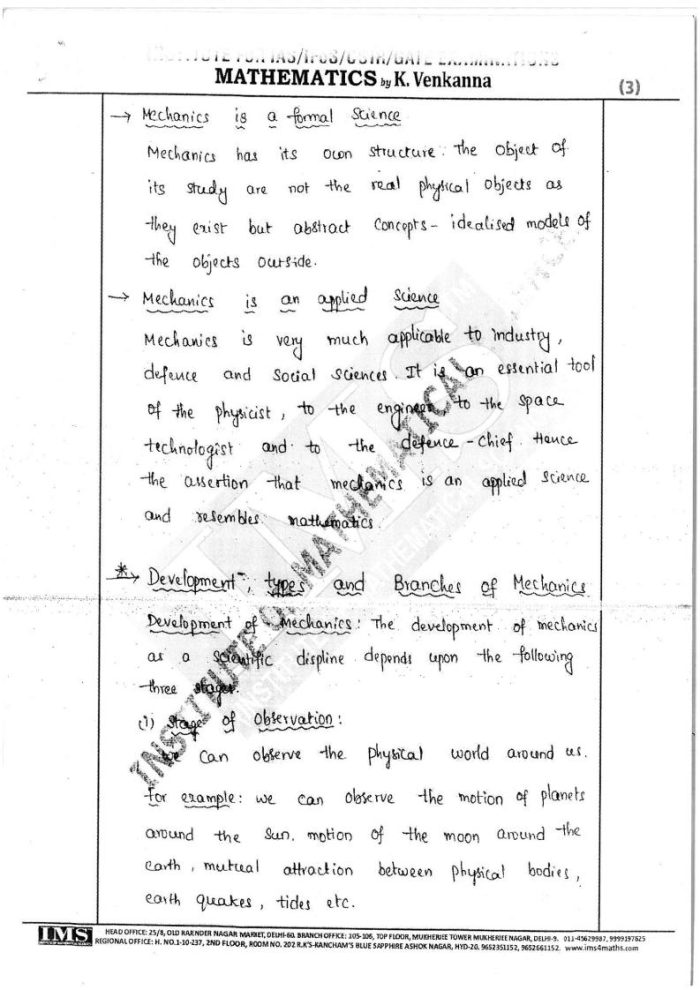 INSTITUTE FOR IAS/IFoS/CSIR/GATE EXAMINATIONS
MATHEMATICS by K. Venkanna
(3)
→ Mechanics is a formal Science
Mechanics has its own structure. The object of
its study are not the real physical objects as
they exist but abstract concepts - idealised models of
the objects outside.
→ Mechanics is an applied Science
Mechanics is very much applicable to industry,
defence and social sciences. It is an essential tool
of the physicist, to the engineer to the space
technologist and to the defence-chief. Hence
the assertion that mechanics is an applied science
and resembles mathematics.
*→ Development, types and Branches of Mechanics
Development of Mechanics: The development of mechanics
as a scientific displine depends upon the following
three stages.
(i) Stage of Observation:
We can observe the physical world around us.
For example: we can observe the motion of planets
around the sun, motion of the moon around the
earth, mutual attraction between physical bodies,
earth quakes, tides etc.
INSTITUTE OF MATHEMATICAL
IMS
HEAD OFFICE: 25/8, OLD RAJENDER NAGAR MARKET, DELHI-60. BRANCH OFFICE: 105-106, TOP FLOOR, MUKHERJEE TOWER MUKHERJEE NAGAR, DELHI-9. 011-45629987, 9999197625
REGIONAL OFFICE: H. NO.1-10-237, 2ND FLOOR, ROOM NO. 202 R.K'S-KANCHAM'S BLUE SAPPHIRE ASHOK NAGAR, HYD-20. 9652351152, 9652661152. www.ims4maths.com